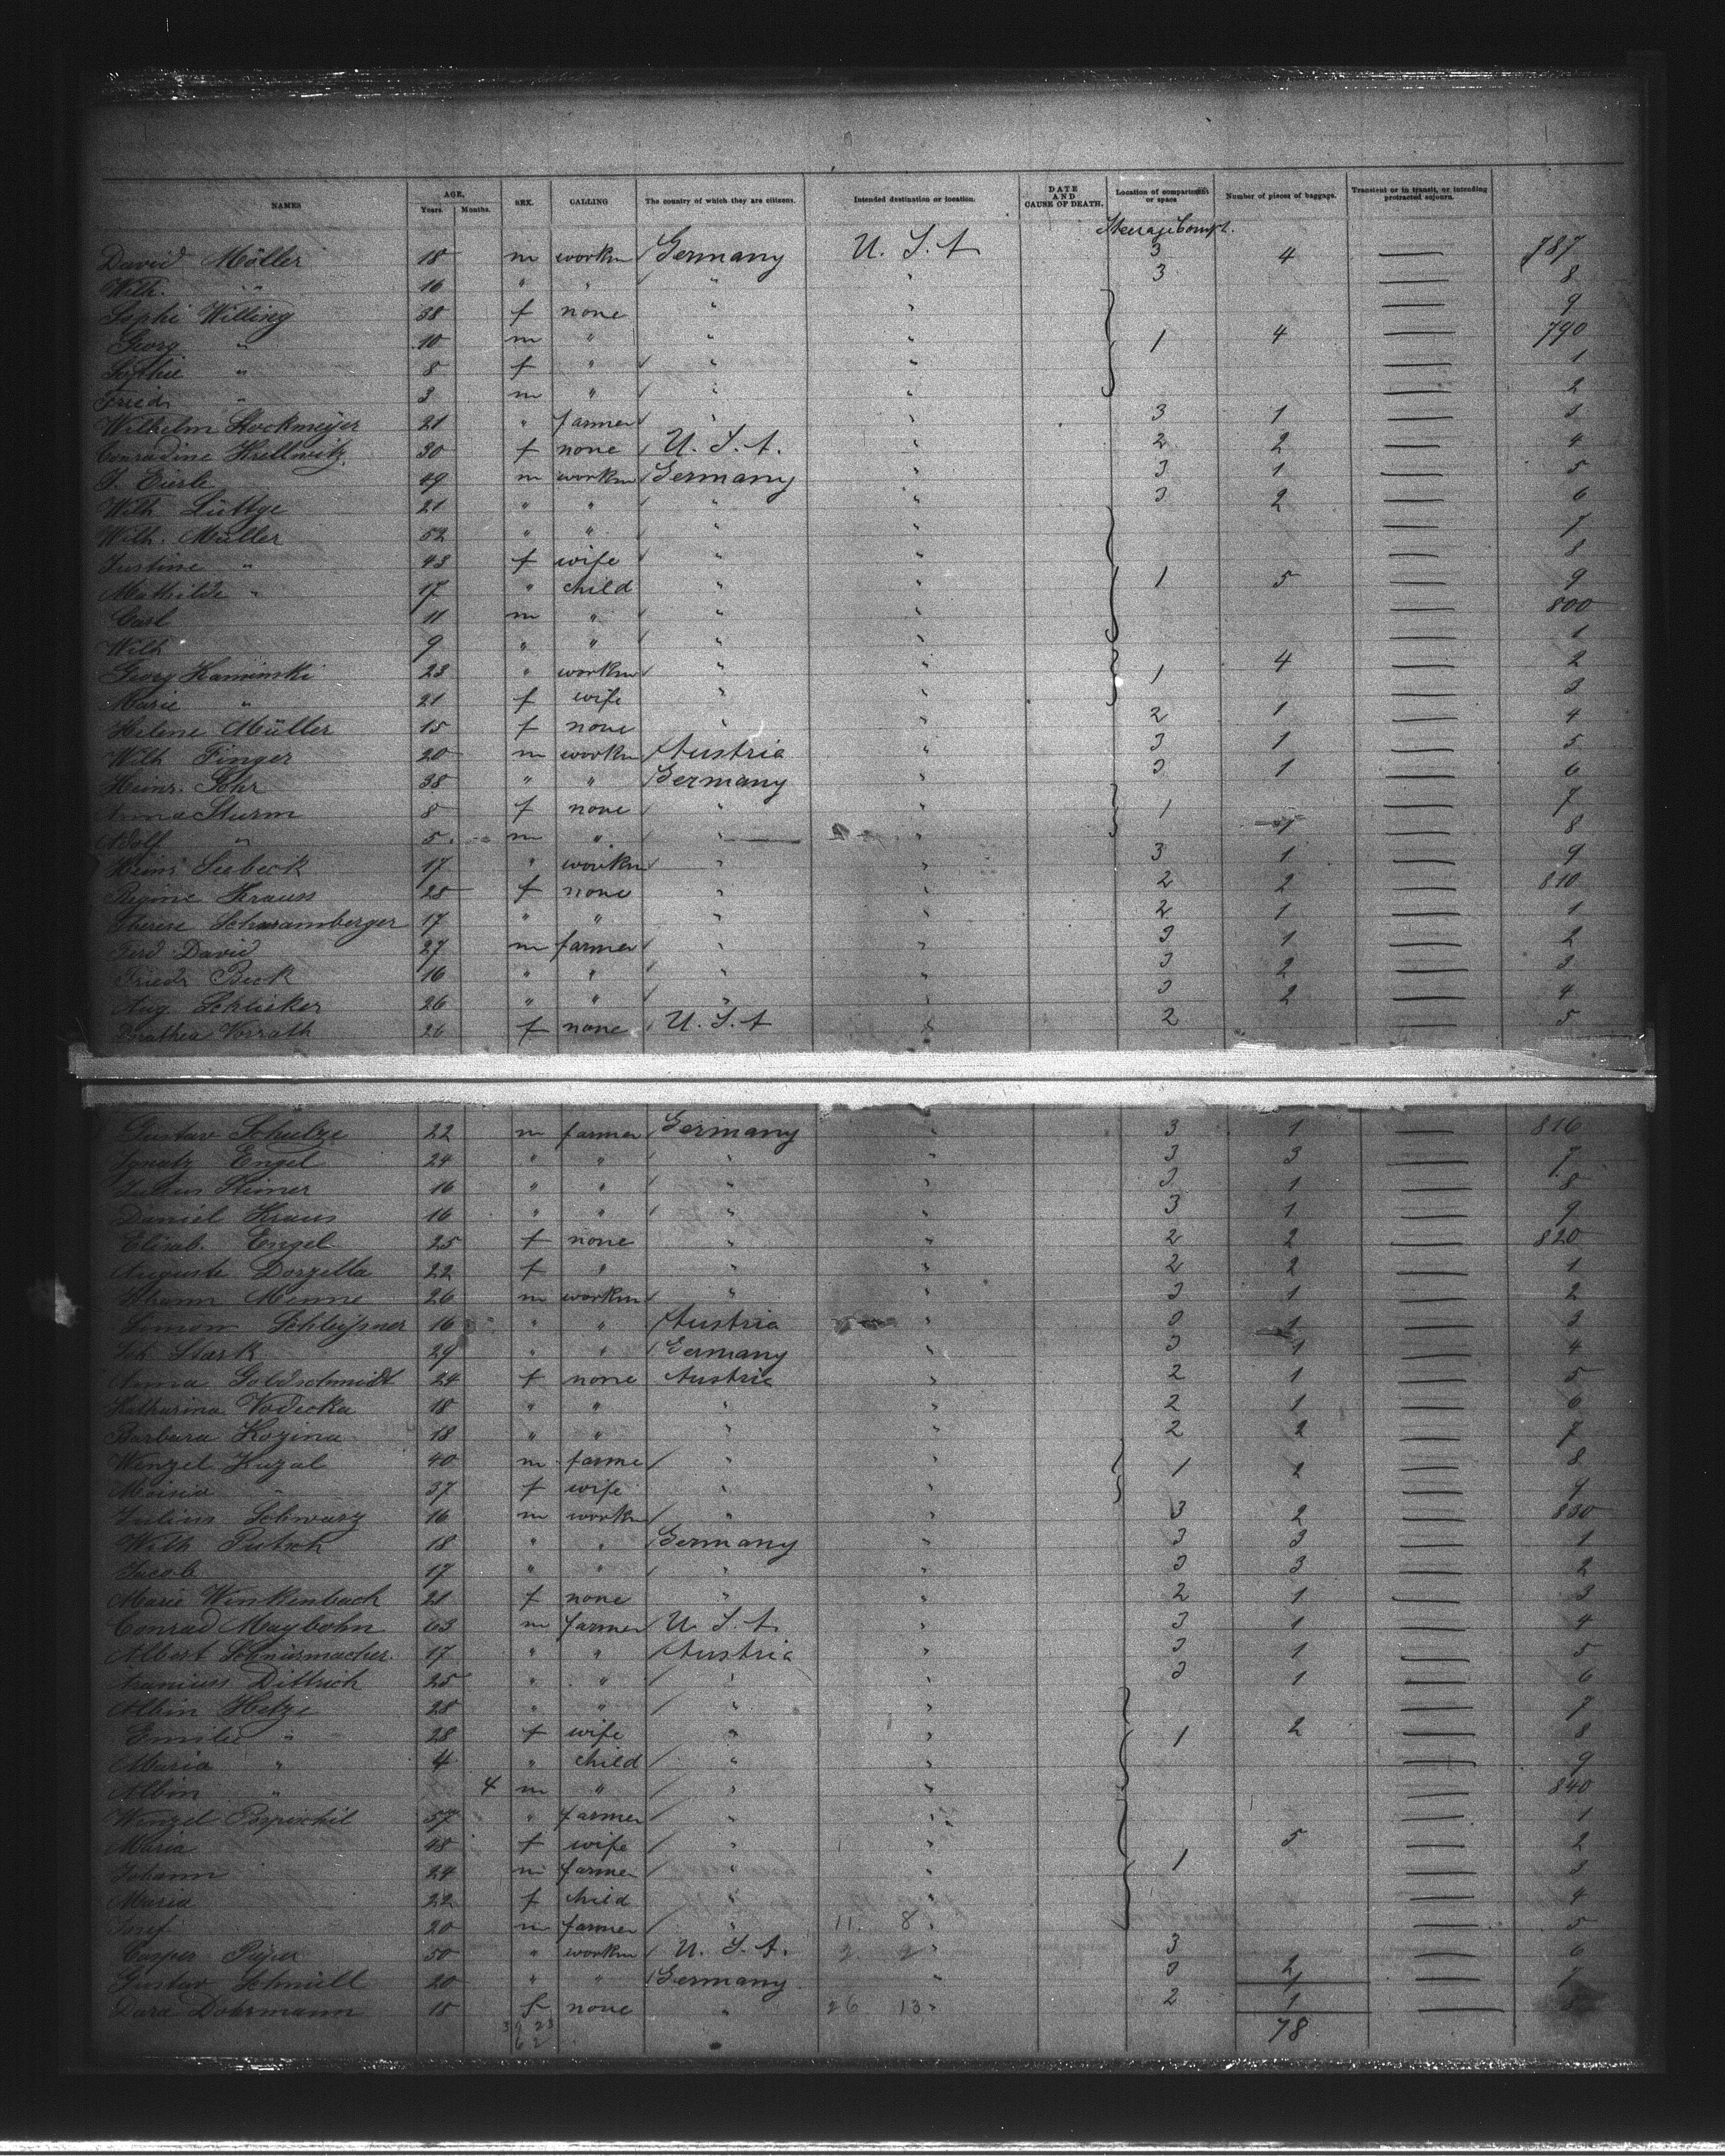 NAMES AGE. Years. Months. SEX. CALLING The country of which they are citizens. Intended destination or location. DATE AND CAUSE OF DEATH. Location of compartment or space Number of pieces of baggage. Transient or in transit, or intending protracted sojourn.
Steerage Compt.
David Müller 18 m workm Germany U. S. A 3 4 — 787
Wilh. " 16 " " " " 3 — 8
Sophi Willing 38 f none " " — 9
Georg " 10 m " " " 1 4 — 790
Sophie " 8 f " " " — 1
Friedr " 3 m " " " — 2
Wilhelm Stockmeyer 21 " farmer " " 3 1 — 3
Conradine Hrellwitz 30 f none U. S. A. " 2 2 — 4
J. Eierle 49 m workm Germany " 3 1 — 5
Wilh Lüttge 21 " " " " 3 2 — 6
Wilh. Müller 52 " " " " — 7
Justine " 43 f wife " " — 8
Mathilde " 17 " child " " 1 5 — 9
Carl 11 m " " " — 800
Wilh 9 " " " " — 1
Georg Kaminski 23 " workm " " 1 4 — 2
Marie " 21 f wife " " — 3
Helene Müller 15 f none " " 2 1 — 4
Wilh Finger 20 m workm Austria " 3 1 — 5
Heinr. Gohr 38 " " Germany " 3 1 — 6
Anna Sturm 8 f none " " 1 — 7
Adolf " 5 m " " " 1 — 8
Heinr Seebeck 17 " workm " " 3 1 — 9
Regine Krauss 28 f none " " 2 2 — 810
Therese Scharamberger 17 " " " " 2 1 — 1
Ferd David 27 m farmer " " 3 1 — 2
Friedr Beck 16 " " " " 3 2 — 3
Aug. Schlicker 26 " " " " 3 2 — 4
Dorathea Vorrath 26 f none U. S. A " 2 — 5
Gustav Schulze 22 m farmer Germany " 3 1 — 816
Ignatz Engel 24 " " " " 3 3 — 7
Julius Steiner 16 " " " " 3 1 — 8
Daniel Kraus 16 " " " " 3 1 — 9
Elisab. Engel 25 f none " " 2 2 — 820
Auguste Dorzella 22 f " " " 2 2 — 1
Johann Menne 26 m workm " " 3 1 — 2
Simon Schleissner 16 " " Austria " 3 1 — 3
Joh Stark 29 " " Germany " 3 1 — 4
Anna Goldschmidt 24 f none Austria " 2 1 — 5
Katharina Vodicka 18 " " " " 2 1 — 6
Barbara Kozina 18 " " " " 2 2 — 7
Wenzel Kuzal 40 m farme " " 1 2 — 8
Maria " 37 f wife " " — 9
Julius Schwarz 16 m workm " " 3 2 — 830
Wilh Putsch 18 " " Germany " 3 3 — 1
Jacob 17 " " " " 3 3 — 2
Marie Winkenbach 21 f none " " 2 1 — 3
Conrad Maybohn 63 m farmer U. S. A. " 3 1 — 4
Albert Schnürmacher. 17 " " Austria " 3 1 — 5
Dittrich 25 " " " " 3 1 — 6
Albin Hetze 28 " " " " — 7
Emilie " 28 f wife " " 1 2 — 8
Maria " 4 " child " " — 9
Albin " 4 m " " " — 840
Wenzel Pospischil 57 " farmer " " — 1
Maria 48 f wife " " 5 — 2
Johann 24 m farmer " " 1 — 3
Maria 22 f child " " — 4
Josef 20 m farmer " 11. 8 " — 5
Casper Pieper 50 " workm U. S. A. 2 2 " 3 2 — 6
Gustav Schmidt 20 " " Germany " 3 1 — 7
Dora Dohrmann 18 f none " 26 13 " 2 1 — 8
39 23
62
78